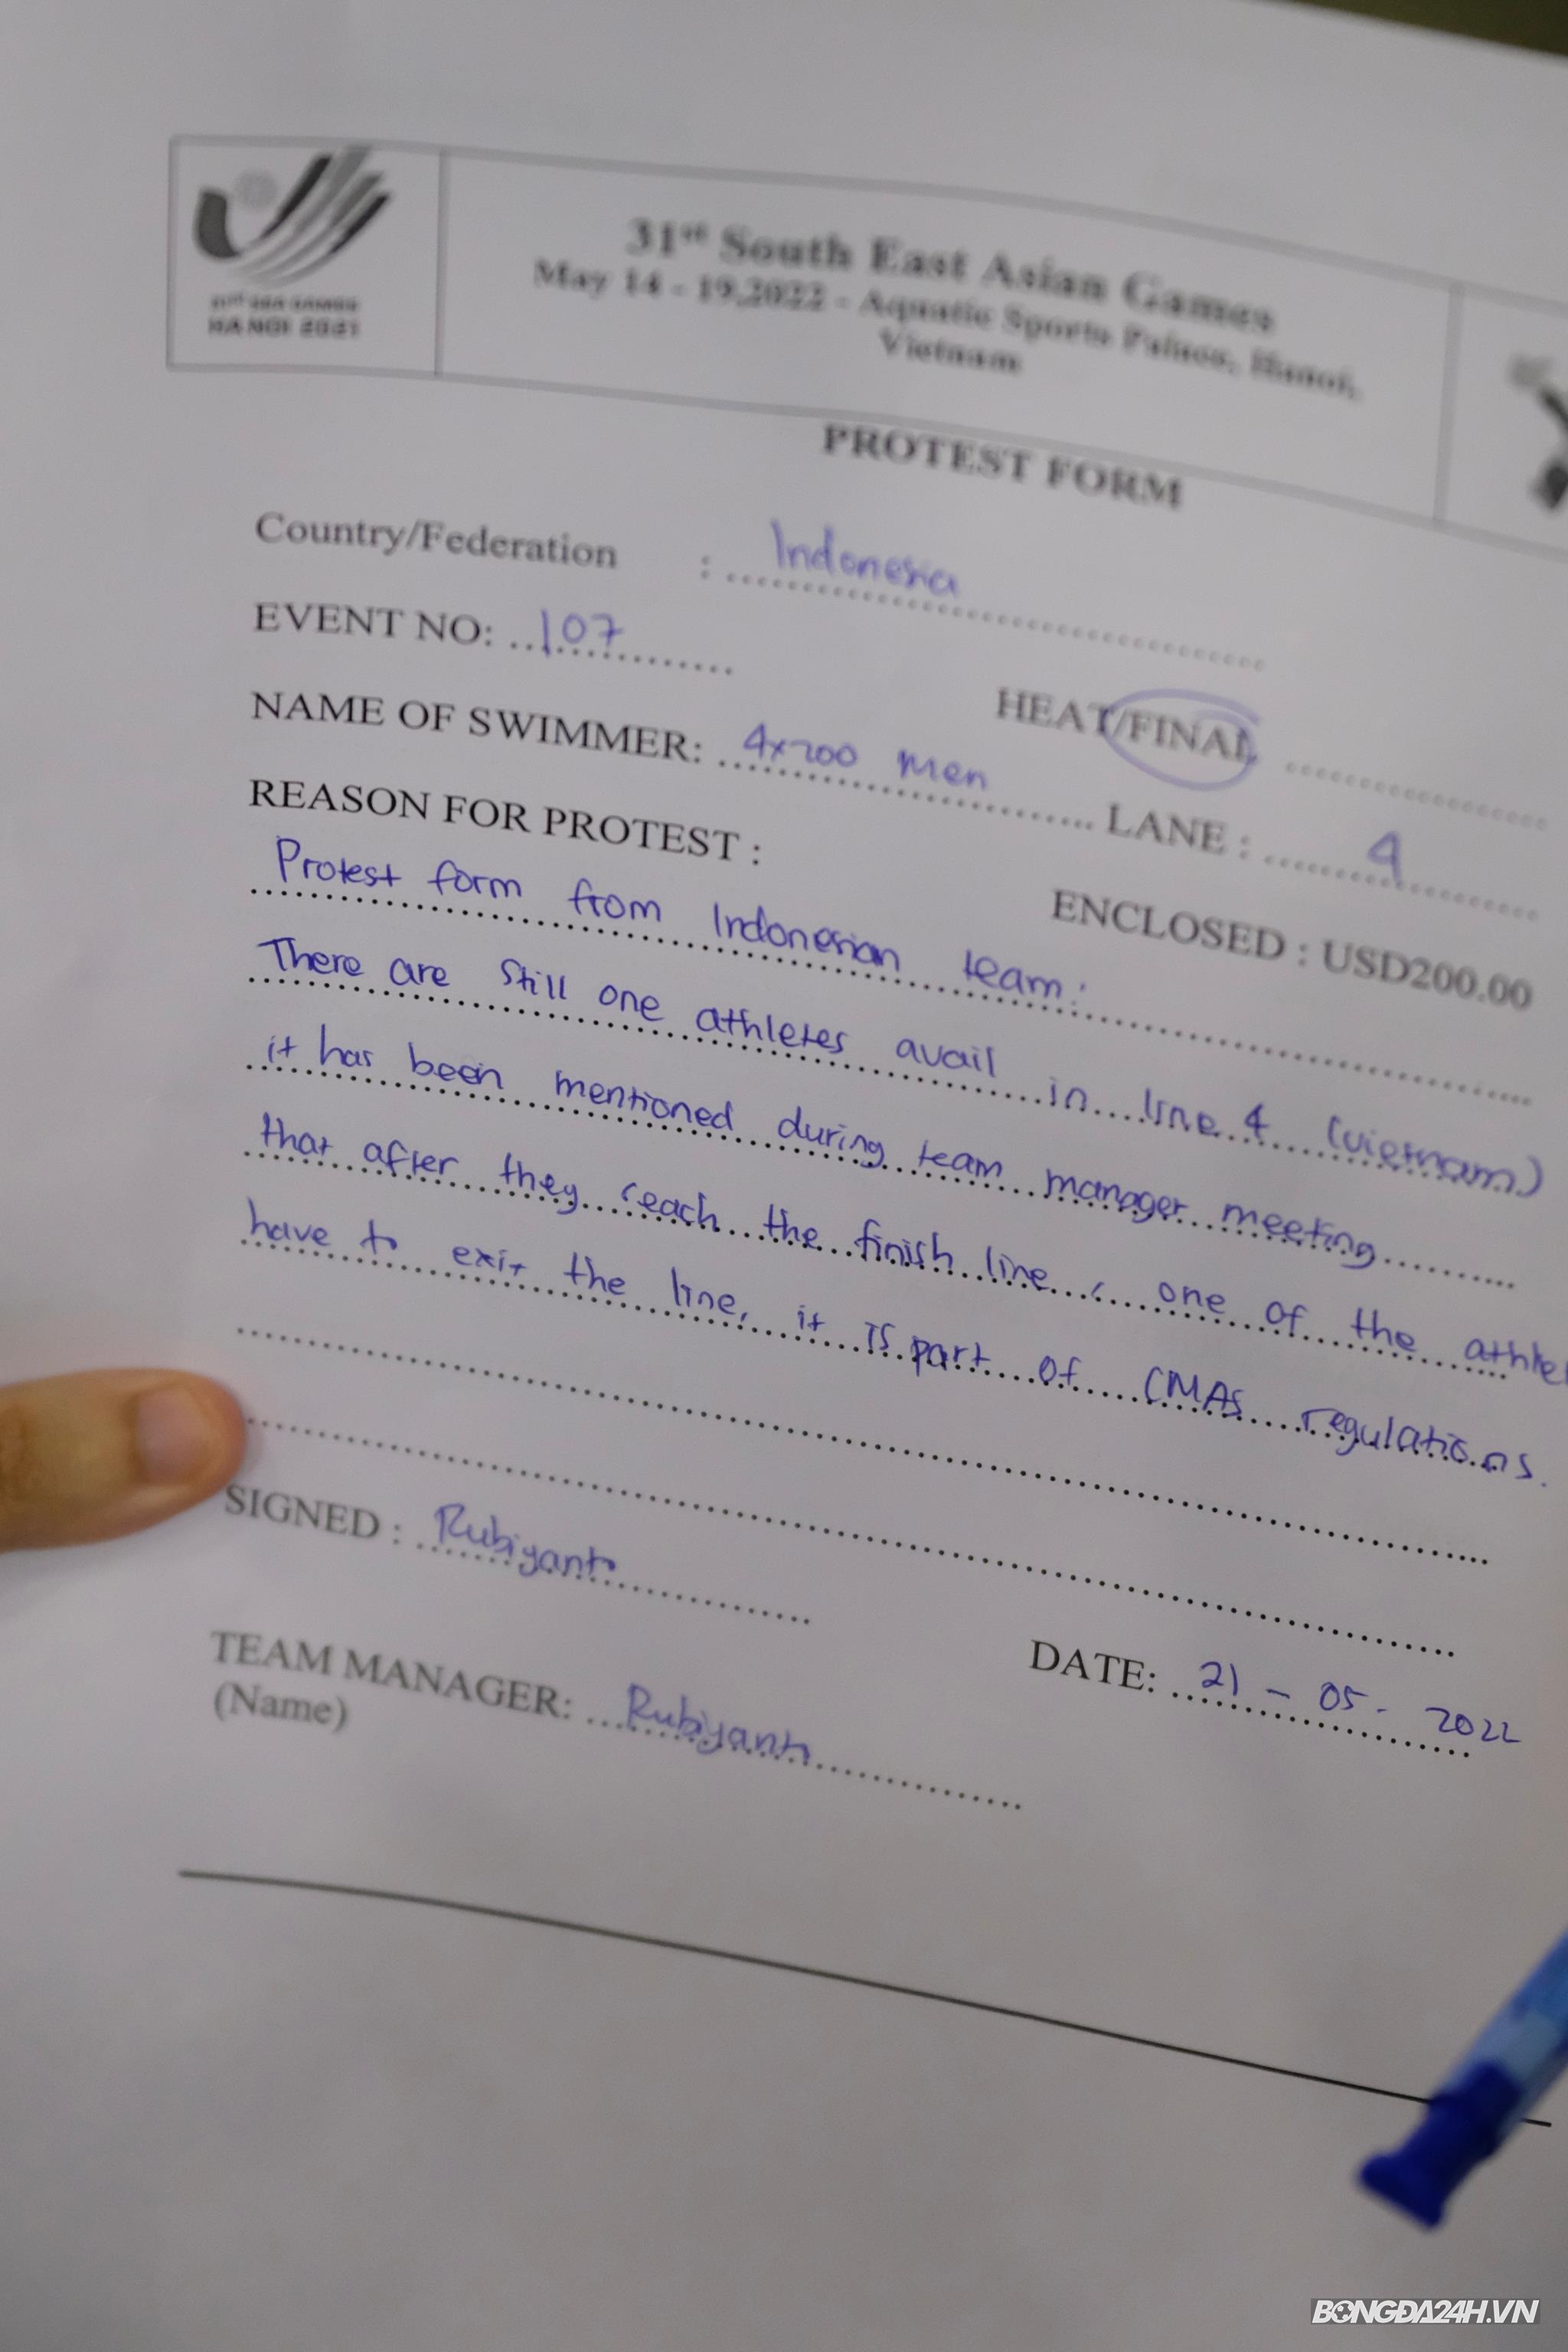 31st SEA GAMES
HANOI 2021
31st South East Asian Games
May 14 - 19,2022 - Aquatic Sports Palace, Hanoi,
Vietnam
PROTEST FORM
Country/Federation : Indonesia
EVENT NO: 107
HEAT/FINAL
NAME OF SWIMMER: 4x200 Men
LANE : 4
REASON FOR PROTEST :
ENCLOSED : USD200.00
Protest form from Indonesian team:
There are still one athletes avail in line 4 (vietnam)
it has been mentioned during team manager meeting
that after they reach the finish line, one of the
have to exit the line, it is part of CMAS regulations.
SIGNED : Rubiyanto
DATE: 21 - 05 - 2022
TEAM MANAGER: Rubiyanto
(Name)
BONGDA24H.VN